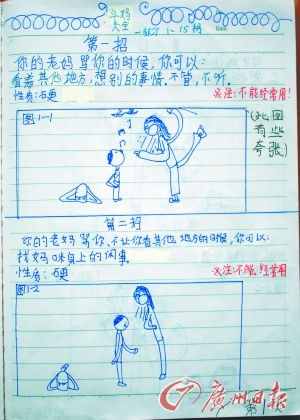 斗妈
大全
一部分 1-15招
第一招
你的老妈骂你的时候,你可以:
看着其他地方,想别的事情。不管,不听。
性质:石更
※注:不能经常用!
图1-1
(此图
有些
夸张)
第二招
你的老妈骂你,不让你看其他地方的时候,你可以:
找妈咪身上的闲事。
性质:石更
※注:不能经常用
图1-2
广州日报